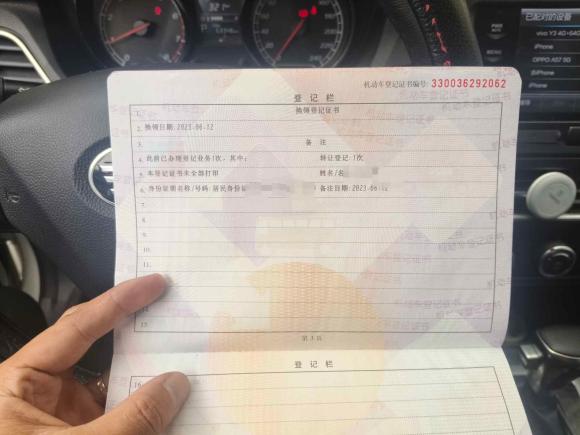 已配对的设备
vivo Y3 4G+64G
iPhone
OPPO A57 5G
的iPhone
iPhone
PWR
MEDIA
机动车登记证书编号: 330036292062
登 记 栏
1. 换领登记证书
2. 换领日期:2023-06-12
3. 备 注
4. 此前已办理登记业务1次，其中: 转让登记:1次
5. 本登记证书未全部打印 姓名/名
6. 身份证明名称/号码:居民身份证 备注日期:2023-06-12
7.
8.
9.
10.
11.
12
13
第 3 页
登 记 栏
16
机动车登记证书